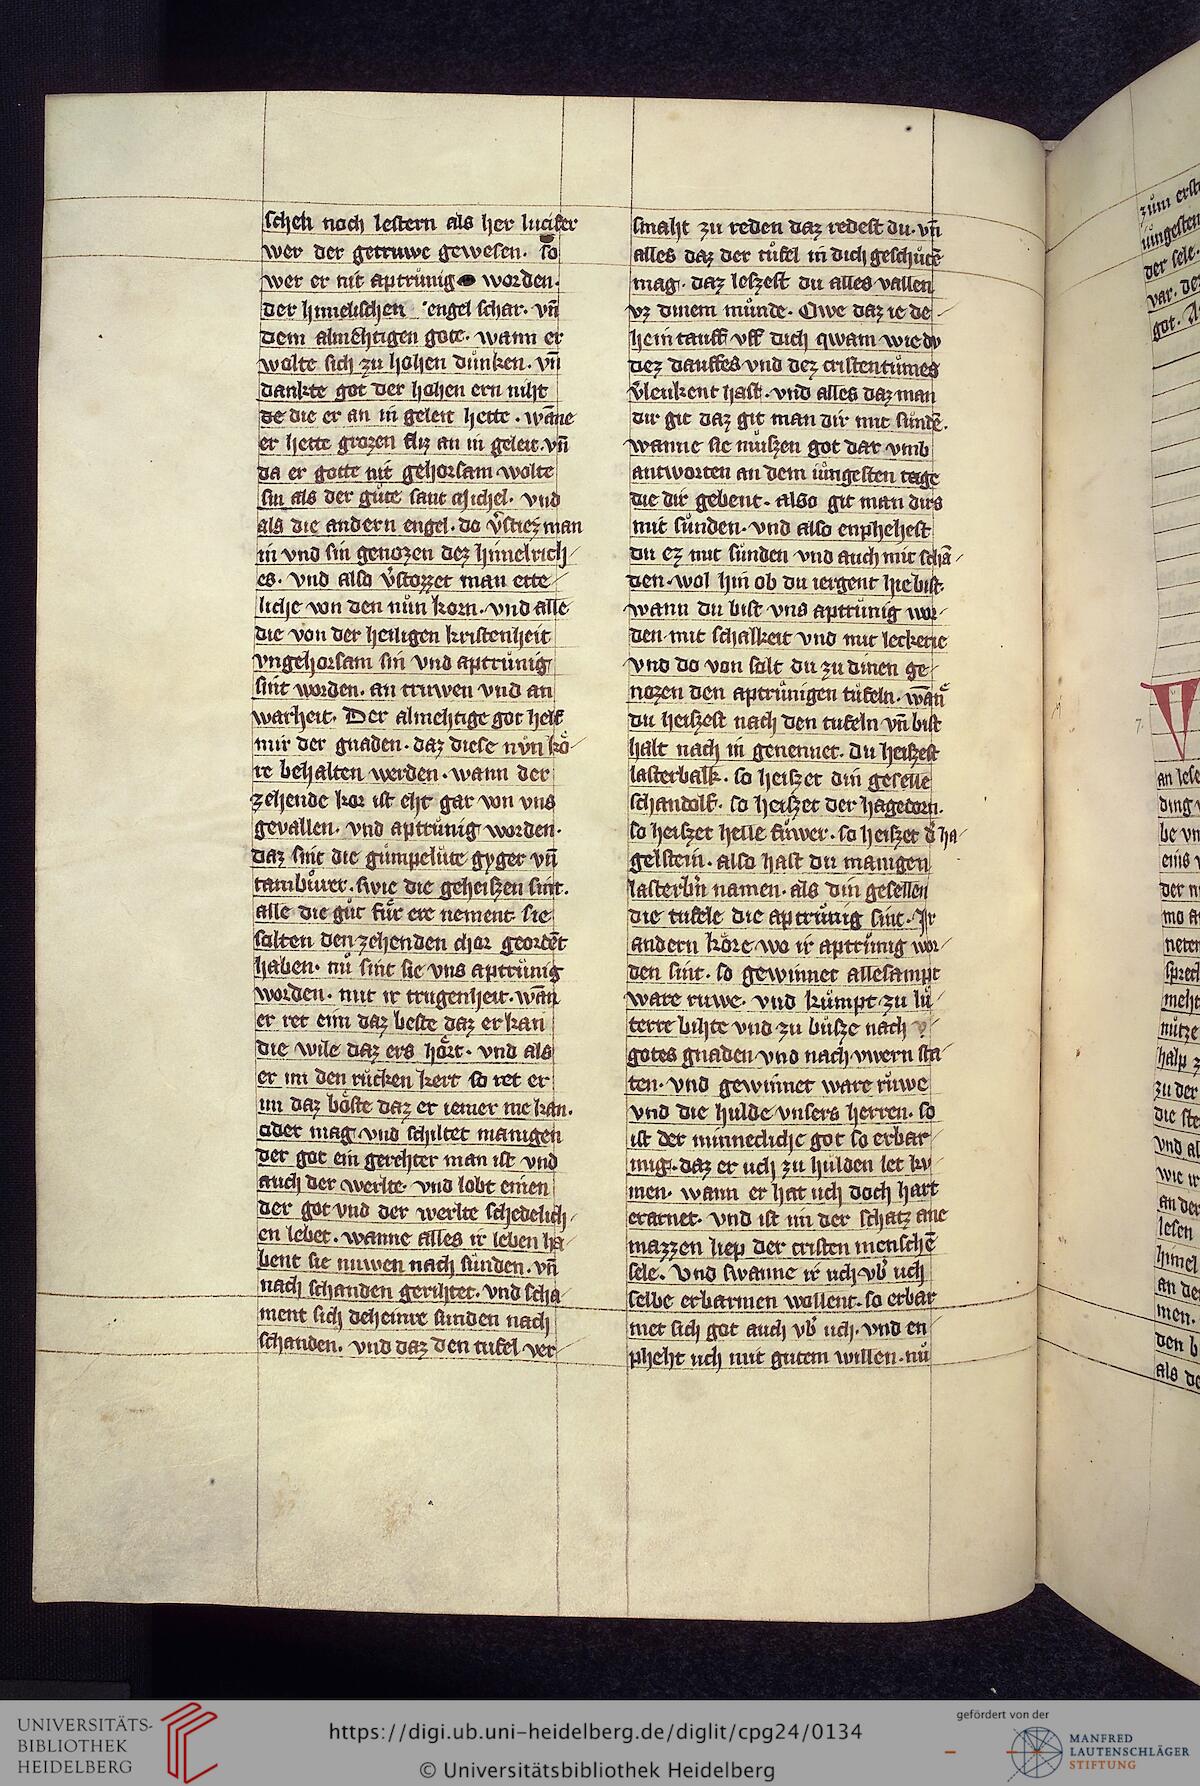 scheh noch lestern als her lucifer
wer der getruwe gewesen. so
wer er nit aptrůnig worden.
der himelischen engel schar. vn̄
dem almehtigen gote. wann er
wolte sich zu hohen dunken. vn̄
dankte got der hohen ern niht
de die er an in geleit hette. wāne
er hette grozen fliz an in geleit. vn̄
da er gotte nit gehorsam wolte
sin als der gůte sant Michel. vnd
als die andern engel. do v̓stiez man
in vnd sin genozen dez himelrich/
es. vnd also v̓stozzet man ette/
liche von den nůn korn. vnd alle
die von der heiligen kristenheit
vngehorsam sin vnd aptrůnig
sint worden. an truwen vnd an
warheit. Der almehtige got helf
mir der gnaden. daz diese nůn kǒ/
re behalten werden. wann der
zehende kor ist eht gar von vns
gevallen. vnd aptrůnig worden.
daz sint die gumpelůte gyger vn̄
tambůrer. swie die geheiszen sint.
alle die gůt fůr ere nement. sie
solten den zehenden chor geordēt
haben. nů sint sie vns aptrůnig
worden. mit ir trugenheit. wān
er ret eim daz beste daz er kan
die wile daz ers hǒrt. vnd als
er im den růcken kert so ret er
im daz bǒste daz er iemer me kan.
oder mag vnd schiltet manigen
der got ein gerehter man ist vnd
auch der werlte. vnd lobt einen
der got vnd der werlte schedelich/
en lebet. wanne alles ir leben ha/
bent sie nuwen nach sůnden. vn̄
nach schanden gerihtet. vnd scha/
ment sich deheinre sunden nach
schanden. vnd daz den tufel ver/
smaht zu reden daz redest du. vn̄
alles daz der tůfel in dich geschůtē
mag. daz leszest du alles vallen
vz dinem munde. Owe daz ie de/
hein tauff vff dich qwam wie du
dez dauffes vnd dez cristentůmes
v̓leukent hast. vnd alles daz man
dir git daz git man dir mit sundē.
wanne sie můszen got dar vmb
antworten an dem iůngesten tage
die dir gebent. also git man dirs
mit sůnden. vnd also enphehest
du ez mit sůnden vnd auch mit schā/
den. wol hin ob du iergent hie bist.
wann du bist vns aptrůnig wor/
den mit schalkeit vnd mit leckerie
vnd do von solt du zu dinen ge/
nozen den aptrůnigen tůfeln. wān̓
du heiszest nach den tufeln vn̄ bist
halt nach in genennet. du heiszest
lasterbalk. so heiszet din geselle
schandolf. so heiszet der hagedorn.
so heiszet helle fůwer. so heiszet d̓ ha/
gelstein. also hast du manigen
lasterbn̄ namen. als din gesellen
die tufele die aptrůnig sint. Ir
andern kǒre wo ir aptrůnig wor/
den sint. so gewinnet allesampt
ware ruwe. vnd kůmpt zu lů/
terre bihte vnd zu bůsze nach
gotes gnaden vnd nach vwern sta/
ten. vnd gewinnet ware růwe
vnd die hulde vnsers herren. so
ist der minnecliche got so erbar/
mig. daz er uch zu hulden let ku/
men. wann er hat uch doch hart
erarnet. vnd ist im der schatz ane
mazzen liep der cristen menschē
sele. Vnd swanne ir uch vb̓ uch
selbe erbarmen wollent. so erbar
met sich got auch vb̓ uch. vnd en/
pheht uch mit gutem willen. nů
zům erst
iungesten
der sele.
var. der
got.
an lese
ding
be vn
eins
der
neten
sprech
meht
nůtze
halp
zu der
die
vnd al
wie ir
an der
lesen
himel
an de
men.
den b
als de
UNIVERSITÄTS-
BIBLIOTHEK
HEIDELBERG
https://digi.ub.uni-heidelberg.de/diglit/cpg24/0134
© Universitätsbibliothek Heidelberg
gefördert von der
MANFRED
LAUTENSCHLÄGER
STIFTUNG